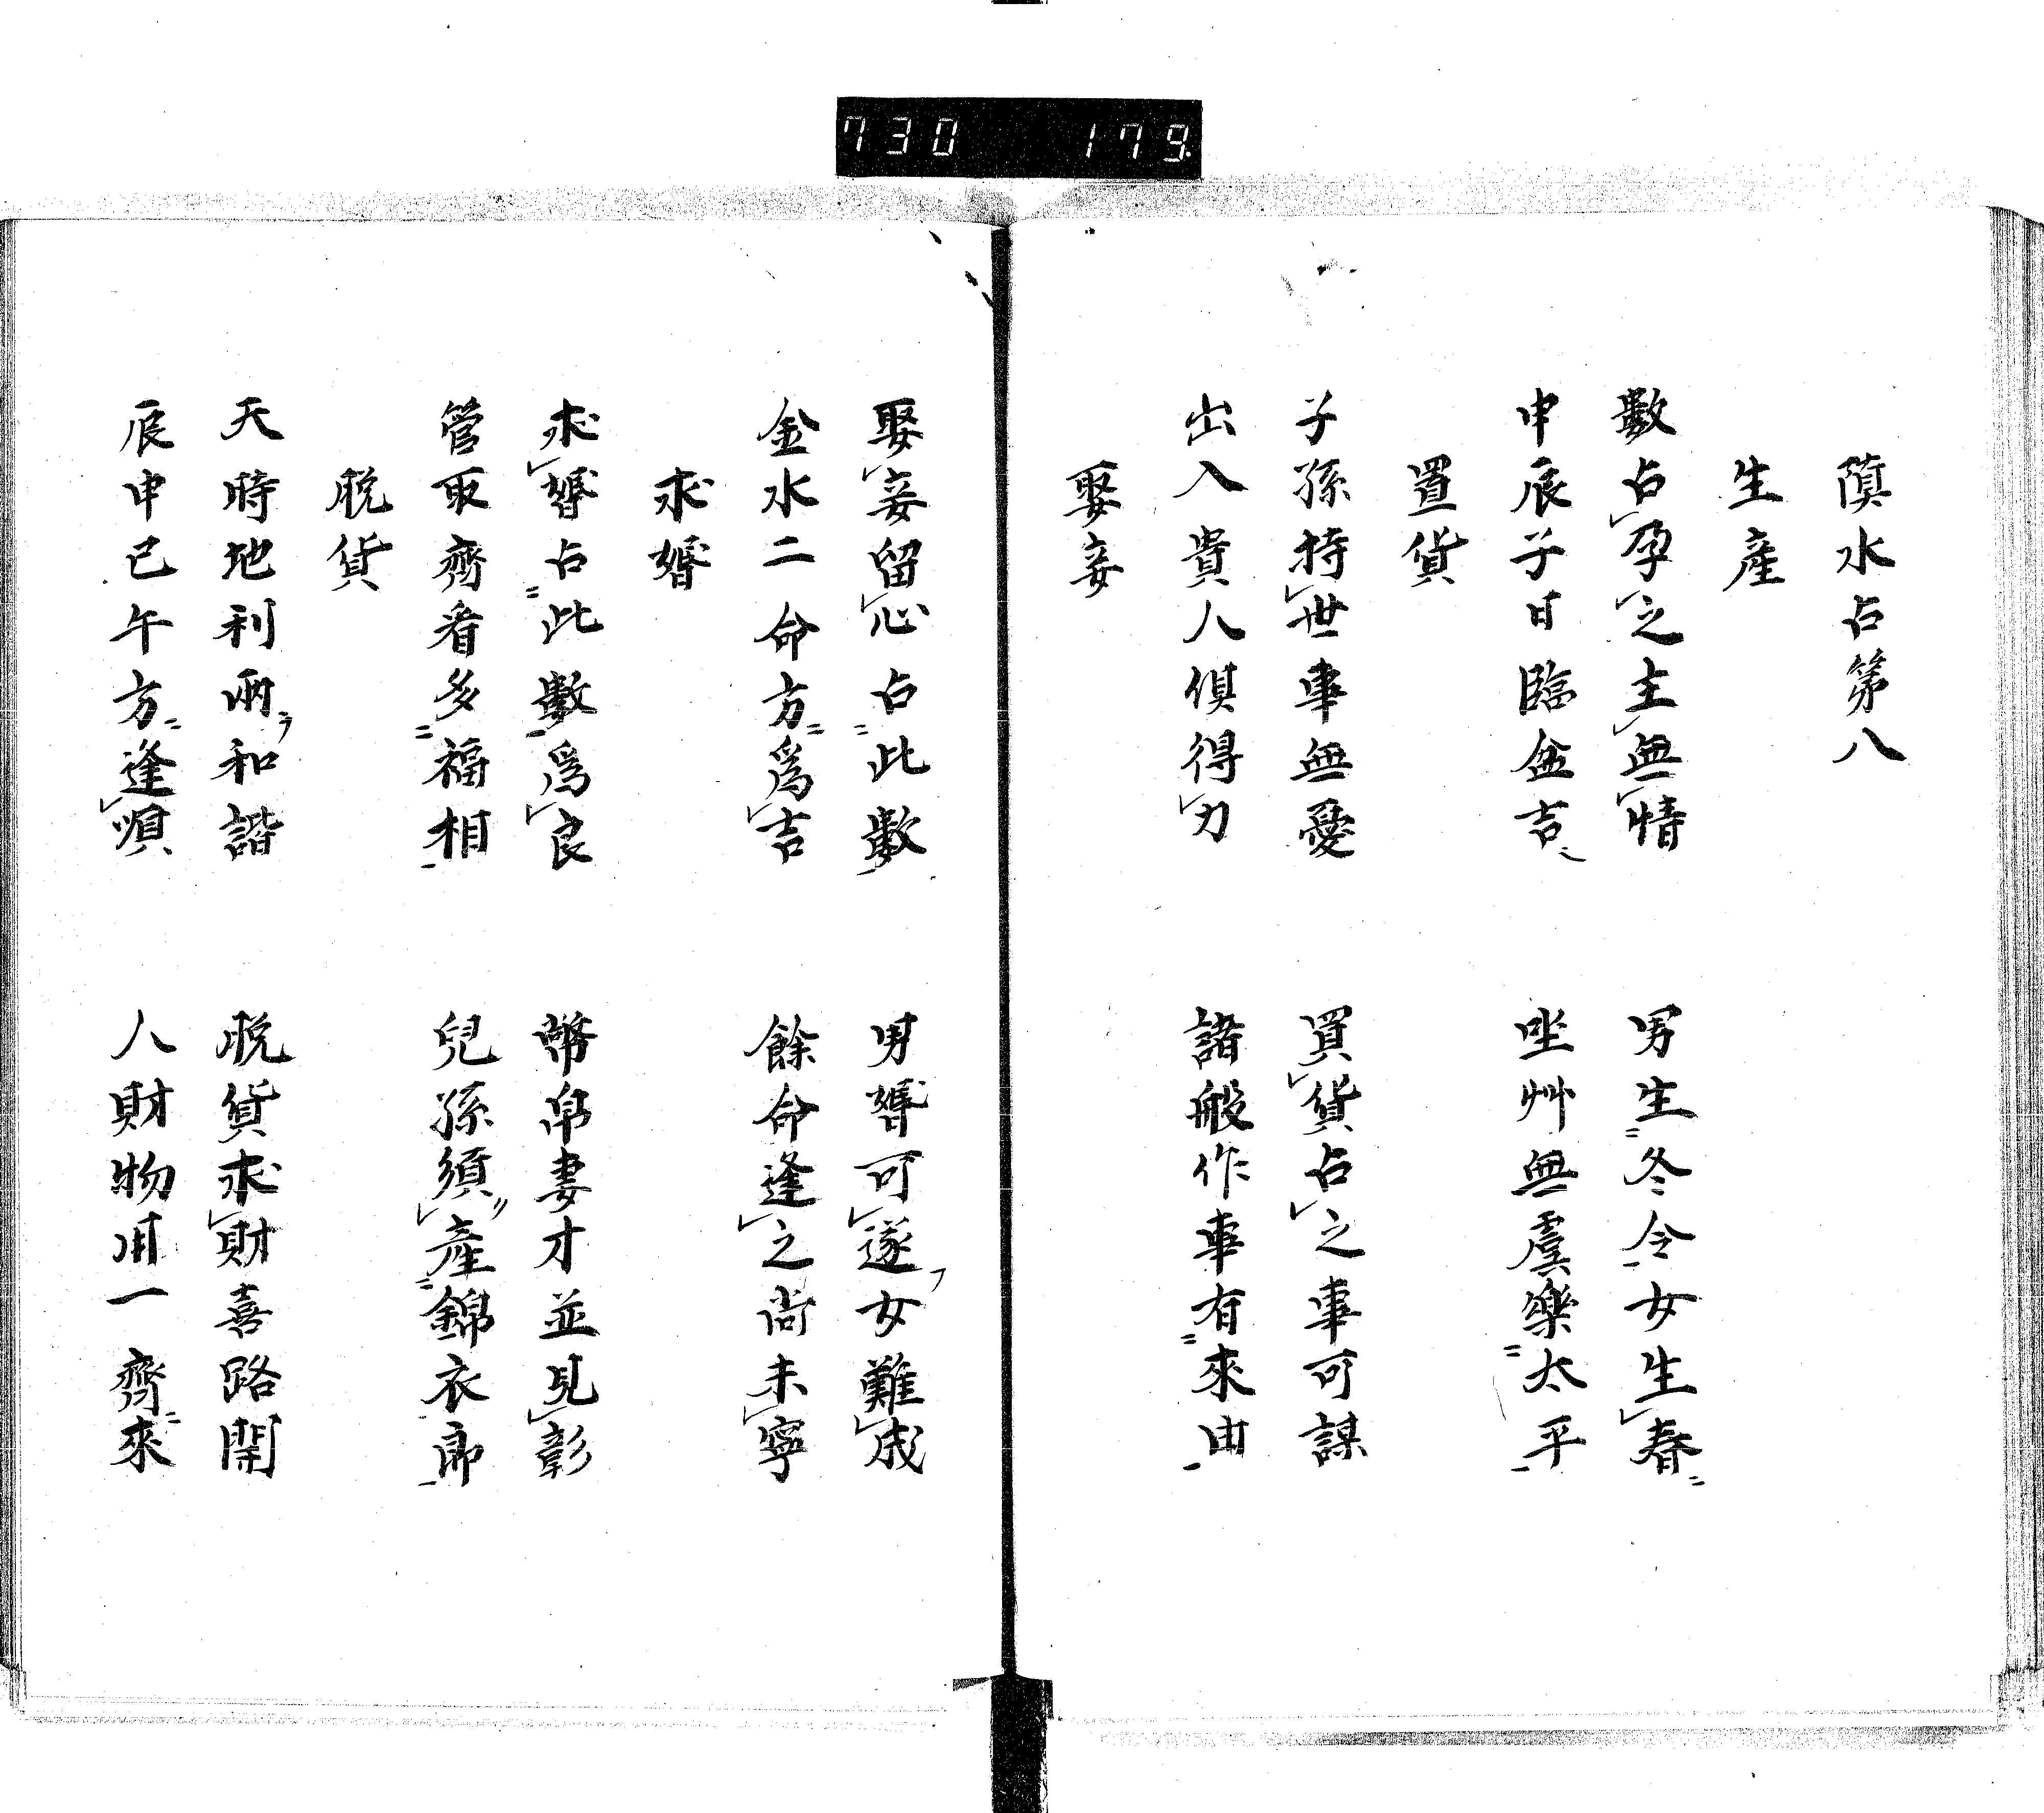 730 179
水占第八
生產
數占孕之主無情 男生冬令女生春
申辰子日臨盆吉 坐艸無虞樂太平
置貨
子孫持世事無憂 買貨占之事可謀
出入貴人俱得力 諸般作事有來由
娶妾
娶妾留心占此數 男婚可遂女難成
金水二命方爲吉 餘命逢之尚未寧
求婚
求婚占此數爲良 幣帛妻才並見彰
管取齊看多福相 兒孫須產錦衣郎
脫貨
天時地利兩和諧 脫貨求財喜路開
辰申巳午方逢順 人財物用一齊來